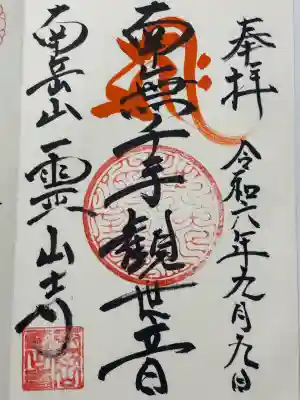 奉拝 令和六年九月九日
南無千手観世音
南岳山 霊山寺